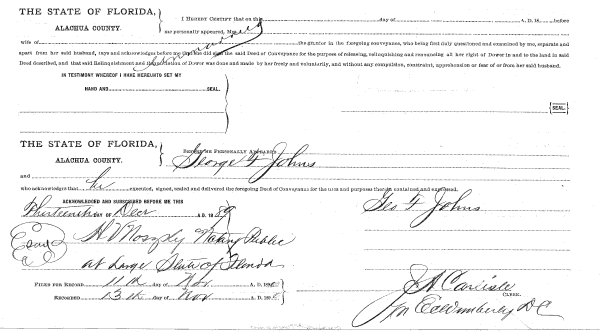 THE STATE OF FLORIDA,
ALACHUA COUNTY.
I HEREBY CERTIFY that on this day of A. D. 18 before
me personally appeared, Mrs.
wife of the grantor in the foregoing conveyance, who being first duly questioned and examined by me, separate and
apart from her said husband, says and acknowledges before me that she did sign the said Deed of Conveyance for the purpose of releasing, relinquishing and renouncing all her right of Dower in and to the land in said
Deed described, and that said Relinquishment and Renunciation of Dower was done and made by her freely and voluntarily, and without any compulsion, constraint, apprehension or fear of or from her said husband.
IN TESTIMONY WHEREOF I HAVE HEREUNTO SET MY
HAND AND SEAL.
SEAL.
THE STATE OF FLORIDA,
ALACHUA COUNTY.
BEFORE ME PERSONALLY APPEARED
George F Johns
and
who acknowledges that he executed, signed, sealed and delivered the foregoing Deed of Conveyance for the uses and purposes therein contained and expressed.
ACKNOWLEDGED AND SUBSCRIBED BEFORE ME THIS
Thirteenth DAY OF Decr A. D. 1889
Geo F Johns
Notary Public
at Large State of Florida
FILED FOR RECORD 11th day of Nov. A. D. 189
RECORDED 13th day of Nov A. D. 189
J A Carlisle
CLERK.
Wimberly DC